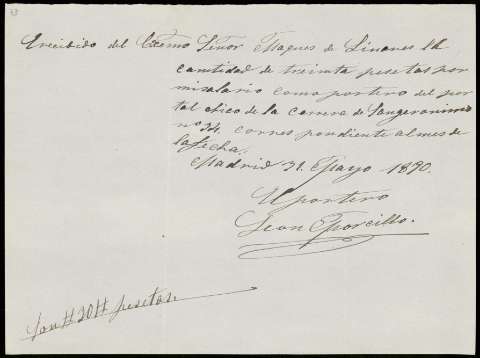 Erecibido del Exemo Señor Maques de Linares la
cantidad de treinta pesetas por
misalario como portero del por
tal chico de la carrera de Sangeronimo
nº 34. corres pondiente al mes de
la fecha.
Madrid 31. Mayo 1890.
El portero
Leon Morcillo.
Son # 30 # pesetas